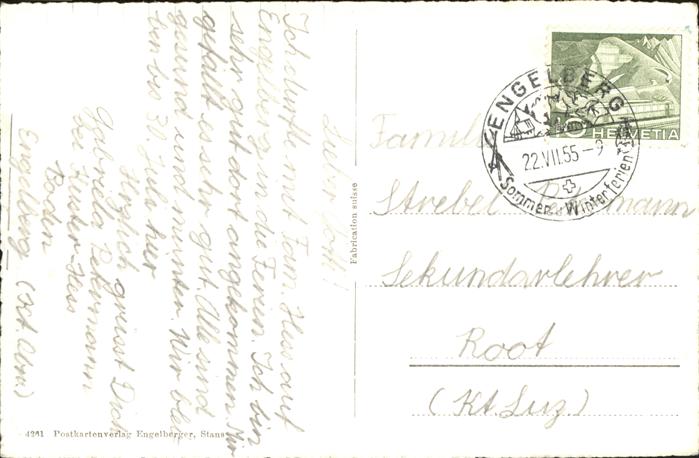 Lieber Gott!
Ich durfte mit Fam. Hess auf
Engelberg in die Ferien. Ich bin
sehr gut dort angekommen. Mir
gefällt es sehr gut. Alle sind
gesund und munter. Wir blei
ben bis 30. Juli hier
Herzlich grüsst Dich
Gabriella
bei Huster-Hess
Boden
Engelberg (Kt. Obw.)
Fabrication suisse
4261 Postkartenverlag Engelberger, Stans
HELVETIA
ENGELBERG
22.VII.55-9
Sommer u Winterferien
Familie
Strebel
Sekundarlehrer
Root
(Kt. Luz)